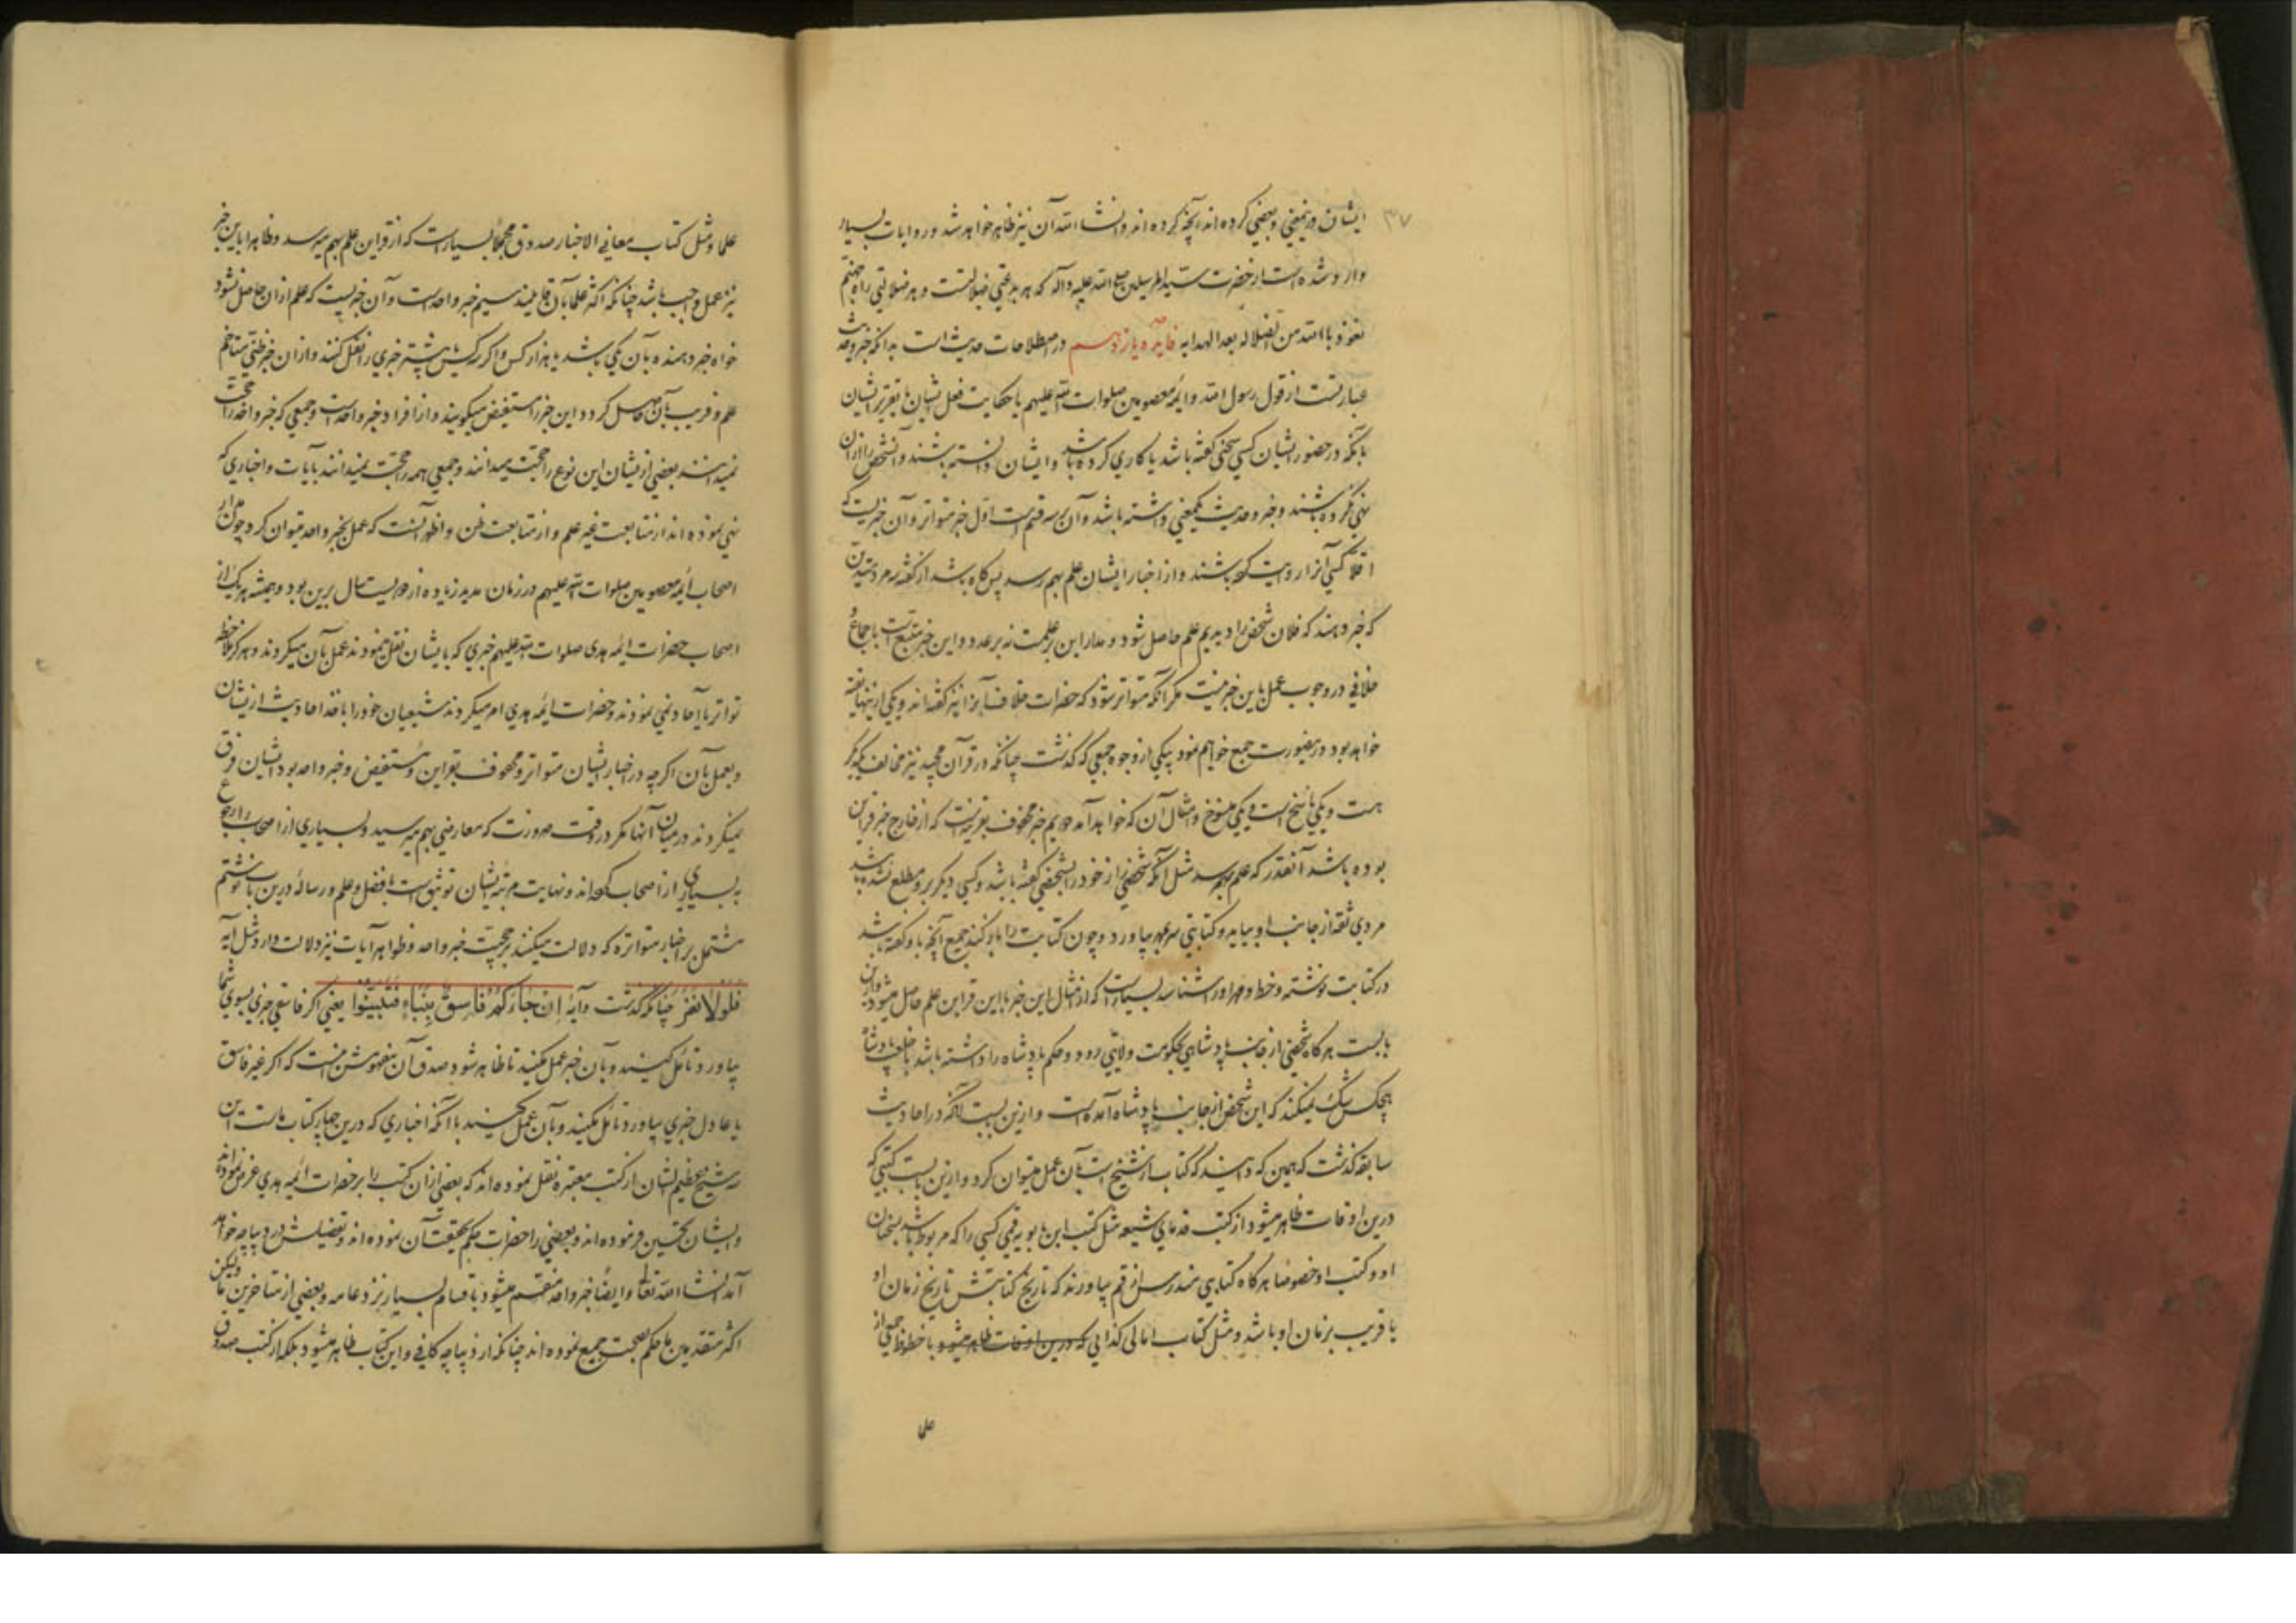 ۳۷
ایشان درینمعنی و بعضی کرده اند آنچه کرده اند و انشاء الله آن نیز ظاهر خواهد شد و روایات بسیار
وارد شده است از حضرت سید المرسلین صلی الله علیه و آله که هر بدعتی ضلالتست و هر ضلالتی راه جهنم
نعوذ باالله من الضلاله بعد الهدایه فایده یازدهم در اصطلاحات حدیث است بدانکه خبر و حدیث
عبارتست از قول رسول الله و ائمه معصومین صلوات الله علیهم یا حکایت فعل ایشان یا تقریر ایشان
بآنکه در حضور ایشان کسی سخنی گفته باشد یا کاری کرده باشد و ایشان دانسته باشند و آنشخص را از آن
نهی نکرده باشند و خبر و حدیث بیکمعنی داشته باشد و آن بر سه قسم است اول خبر متواتر و آن خبریست که
آنرا روایت کرده باشند و از اخبار ایشان علم بهم رسد پس گاه باشد از گفته سه مرد متدین
که خبر دهند که فلان شخص را دیدیم علم حاصل شود و مدار این بر علمست نه بر عدد و این خبر متبع است باجماع و
خلافی در وجوب عمل باین خبر نیست مگر آنکه متواتر شود که حضرات خلاف آنرا نیز گفته اند و یکی ازینها تقیه
خواهد بود درینصورت جمع خواهم نمود بیکی از وجوه جمعی که گذشت چنانکه در قرآن مجید نیز مخالف یکدیگر
هست و یکی ناسخ است و یکی منسوخ و امثال آن که خواهد آمد دویم خبر محفوف بقرینه است که از خارج خبر قراین
بوده باشد آنقدر که علم بهم رسد مثل آنکه شخصی راز خود را بشخصی گفته باشد و کسی دیگر برو مطلع نشده باشد
مردی ثقه از جانب او بیاید و کتابتی سر بمهر بیاورد و چون کتابت را باز کند جمیع آنچه باو گفته باشد
در کتابت نوشته و خط و مهر او را شناسد بسیار است که از امثال این خبر با این قراین علم حاصل میشود و ازین
بابست هر گاه شخصی از جانب پادشاهی بحکومت ولایتی رود و حکم پادشاه را داشته باشد با خلعت پادشاه
هیچکس شک نمیکند که این شخص از جانب پادشاه آمده است و ازین بابست آنکه در احادیث
سابقه گذشت که همین که دانید که کتاب از شیخ است بآن عمل میتوان کرد و ازین بابست کتبی که
درین اوقات ظاهر میشود از کتب قدمای شیعه مثل کتب ابن بابویه قمی کسی را که مربوط باشد بسخنان
او و کتب او خصوصا هر گاه کتابی مندرس از قم بیاورند که تاریخ کتابتش تاریخ زمان او
یا قریب بزمان او باشد و مثل کتاب امالی کذایی که درین اوقات ظاهر میشود با خطوط جمعی از
علما
علما و مثل کتاب معانی الاخبار صدوق مجملا بسیار است که از قراین علم بهم میرسد و ظاهرا باین خبر
نیز عمل واجب باشد چنانکه اکثر علما بآن قایلند سیم خبر واحد است و آن خبریست که علم از آن حاصل نشود
خواه خبر دهنده بآن یکی باشد یا هزار کس و اگر سه کس یا بیشتر خبری را نقل کنند و از آن خبر ظنی متاخم
علم و قریب بآن حاصل گردد این خبر را مستفیض میگویند و از افراد خبر واحد است و جمعی که خبر واحد را حجت
نمیدانند بعضی از یشان این نوع را حجت میدانند و جمعی همه را حجت نمیدانند بآیات و اخباری که
نهی نموده اند از متابعت غیر علم و از متابعت ظن و اظهر آنست که عمل بخبر واحد میتوان کرد چون مدار
اصحاب ائمه معصومین صلوات الله علیهم در زمان مدید زیاده از دویست سال برین بود و همیشه هر یک از
اصحاب حضرات ائمه هدی صلوات الله علیهم خبری که بایشان نقل مینمودند عمل بآن میکردند و هرگز ملاحظه
تواتر یا آحاد نمی نمودند و حضرات ائمه هدی امر میکردند شیعیان خود را باخذ احادیث ازیشان
و بعمل بآن اگر چه در اخبار ایشان متواتر و محفوف بقراین و مستفیض و خبر واحد بود ایشان فرق
نمیکردند در میان آنها مگر در وقت ضرورت که معارضی بهم میرسید و بسیاری از اصحاب را رجوع
به بسیاری از اصحاب کرده اند و نهایت مرتبه ایشان توثیق است یا فضل و علم و رساله درین باب نوشتم
مشتمل بر اخبار متواتره که دلالت میکنند بر حجیت خبر واحد و ظواهر آیات نیز دلالت دارد مثل آیه
فَلَولا نَفَرَ چنانکه گذشت و آیه اِن جاءَکُم فاسِقٌ بِنَبَاءٍ فَتَبَیَّنُوا یعنی اگر فاسقی خبری بسوی شما
بیاورد تأمل کنید و بآن خبر عمل مکنید تا ظاهر شود صدق آن مفهومش اینست که اگر غیر فاسق
یا عادل خبری بیاورد تأمل مکنید و بآن عمل کنید با آنکه اخباری که درین چهار کتاب ماست این
سه شیخ عظیم الشان از کتب معتبره نقل نموده اند که بعضی از آن کتب را بر حضرات ائمه هدی عرض نموده اند
و ایشان تحسین فرموده اند و بعضی را حضرات حکم بحقیقت آن نموده اند و تفصیلش در دیباچه خواهد
آمد انشاء الله تعالی و ایضا خبر واحد منقسم میشود باقسام بسیار نزد عامه و بعضی از متاخرین ما ولیکن
اکثر متقدمین ما حکم بصحت جمیع نموده اند چنانکه از دیباچه کافی و این کتاب ظاهر میشود بلکه از کتب صدوق